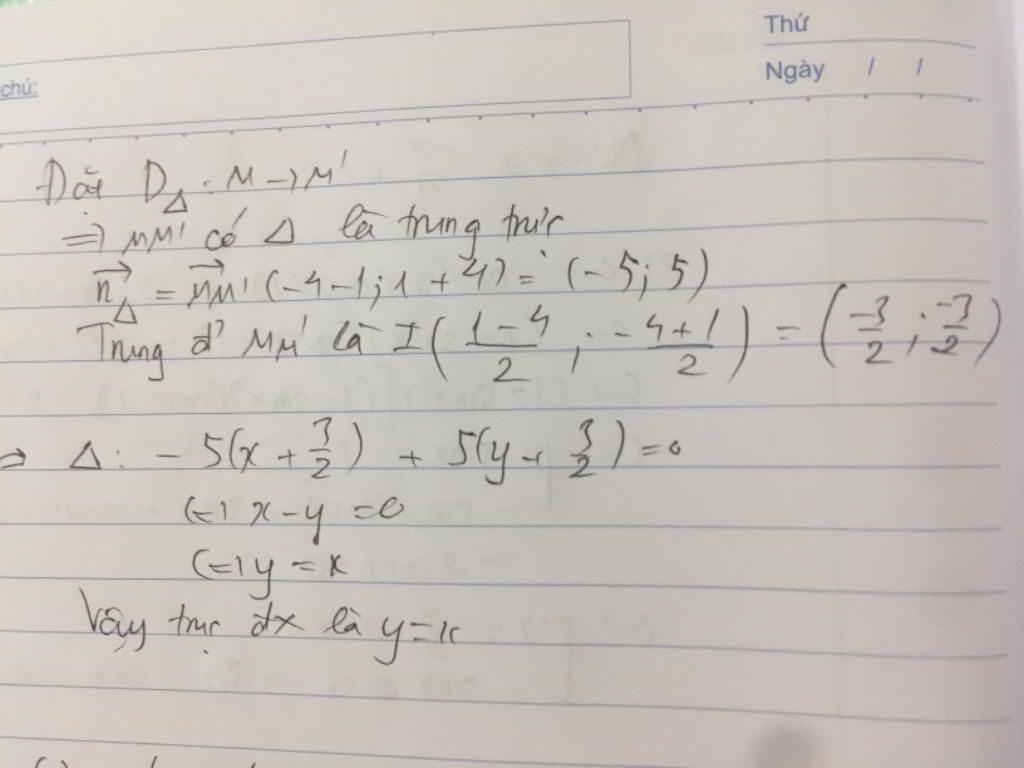 Thứ
Ngày / /
chú:
Đặt D_Δ : M → M'
=> MM' có Δ là trung trực
n⃗_Δ = MM'⃗ (-4-1; 1+4) = (-5; 5)
Trung đ' MM' là I((1-4)/2 ; (-4+1)/2) = (-3/2 ; -3/2)
=> Δ: -5(x + 3/2) + 5(y + 3/2) = 0
(=) x - y = 0
(=) y = x
Vậy trục đx là y = x